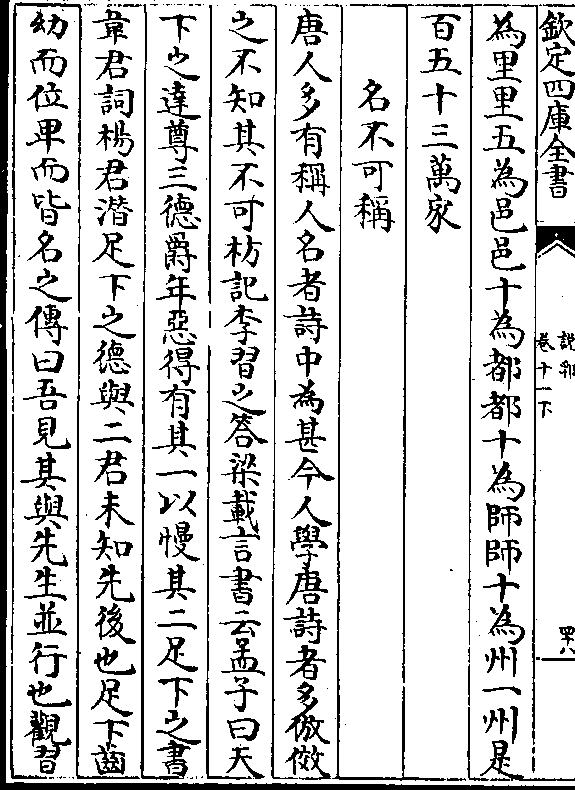 欽定四庫全書
說郛
卷十一下
四十八
為里里五為邑邑十為都都十為師師十為州一州是
百五十三萬家
名不可稱
唐人多有稱人名者詩中為甚今人學唐詩者多倣傚
之不知其不可枋記李習之答梁載言書云孟子曰天
下之達尊三德爵年惡得有其一以慢其二足下之書
韋君詞楊君潛足下之德與二君未知先後也足下齒
幼而位卑而皆名之傳曰吾見其與先生並行也觀習